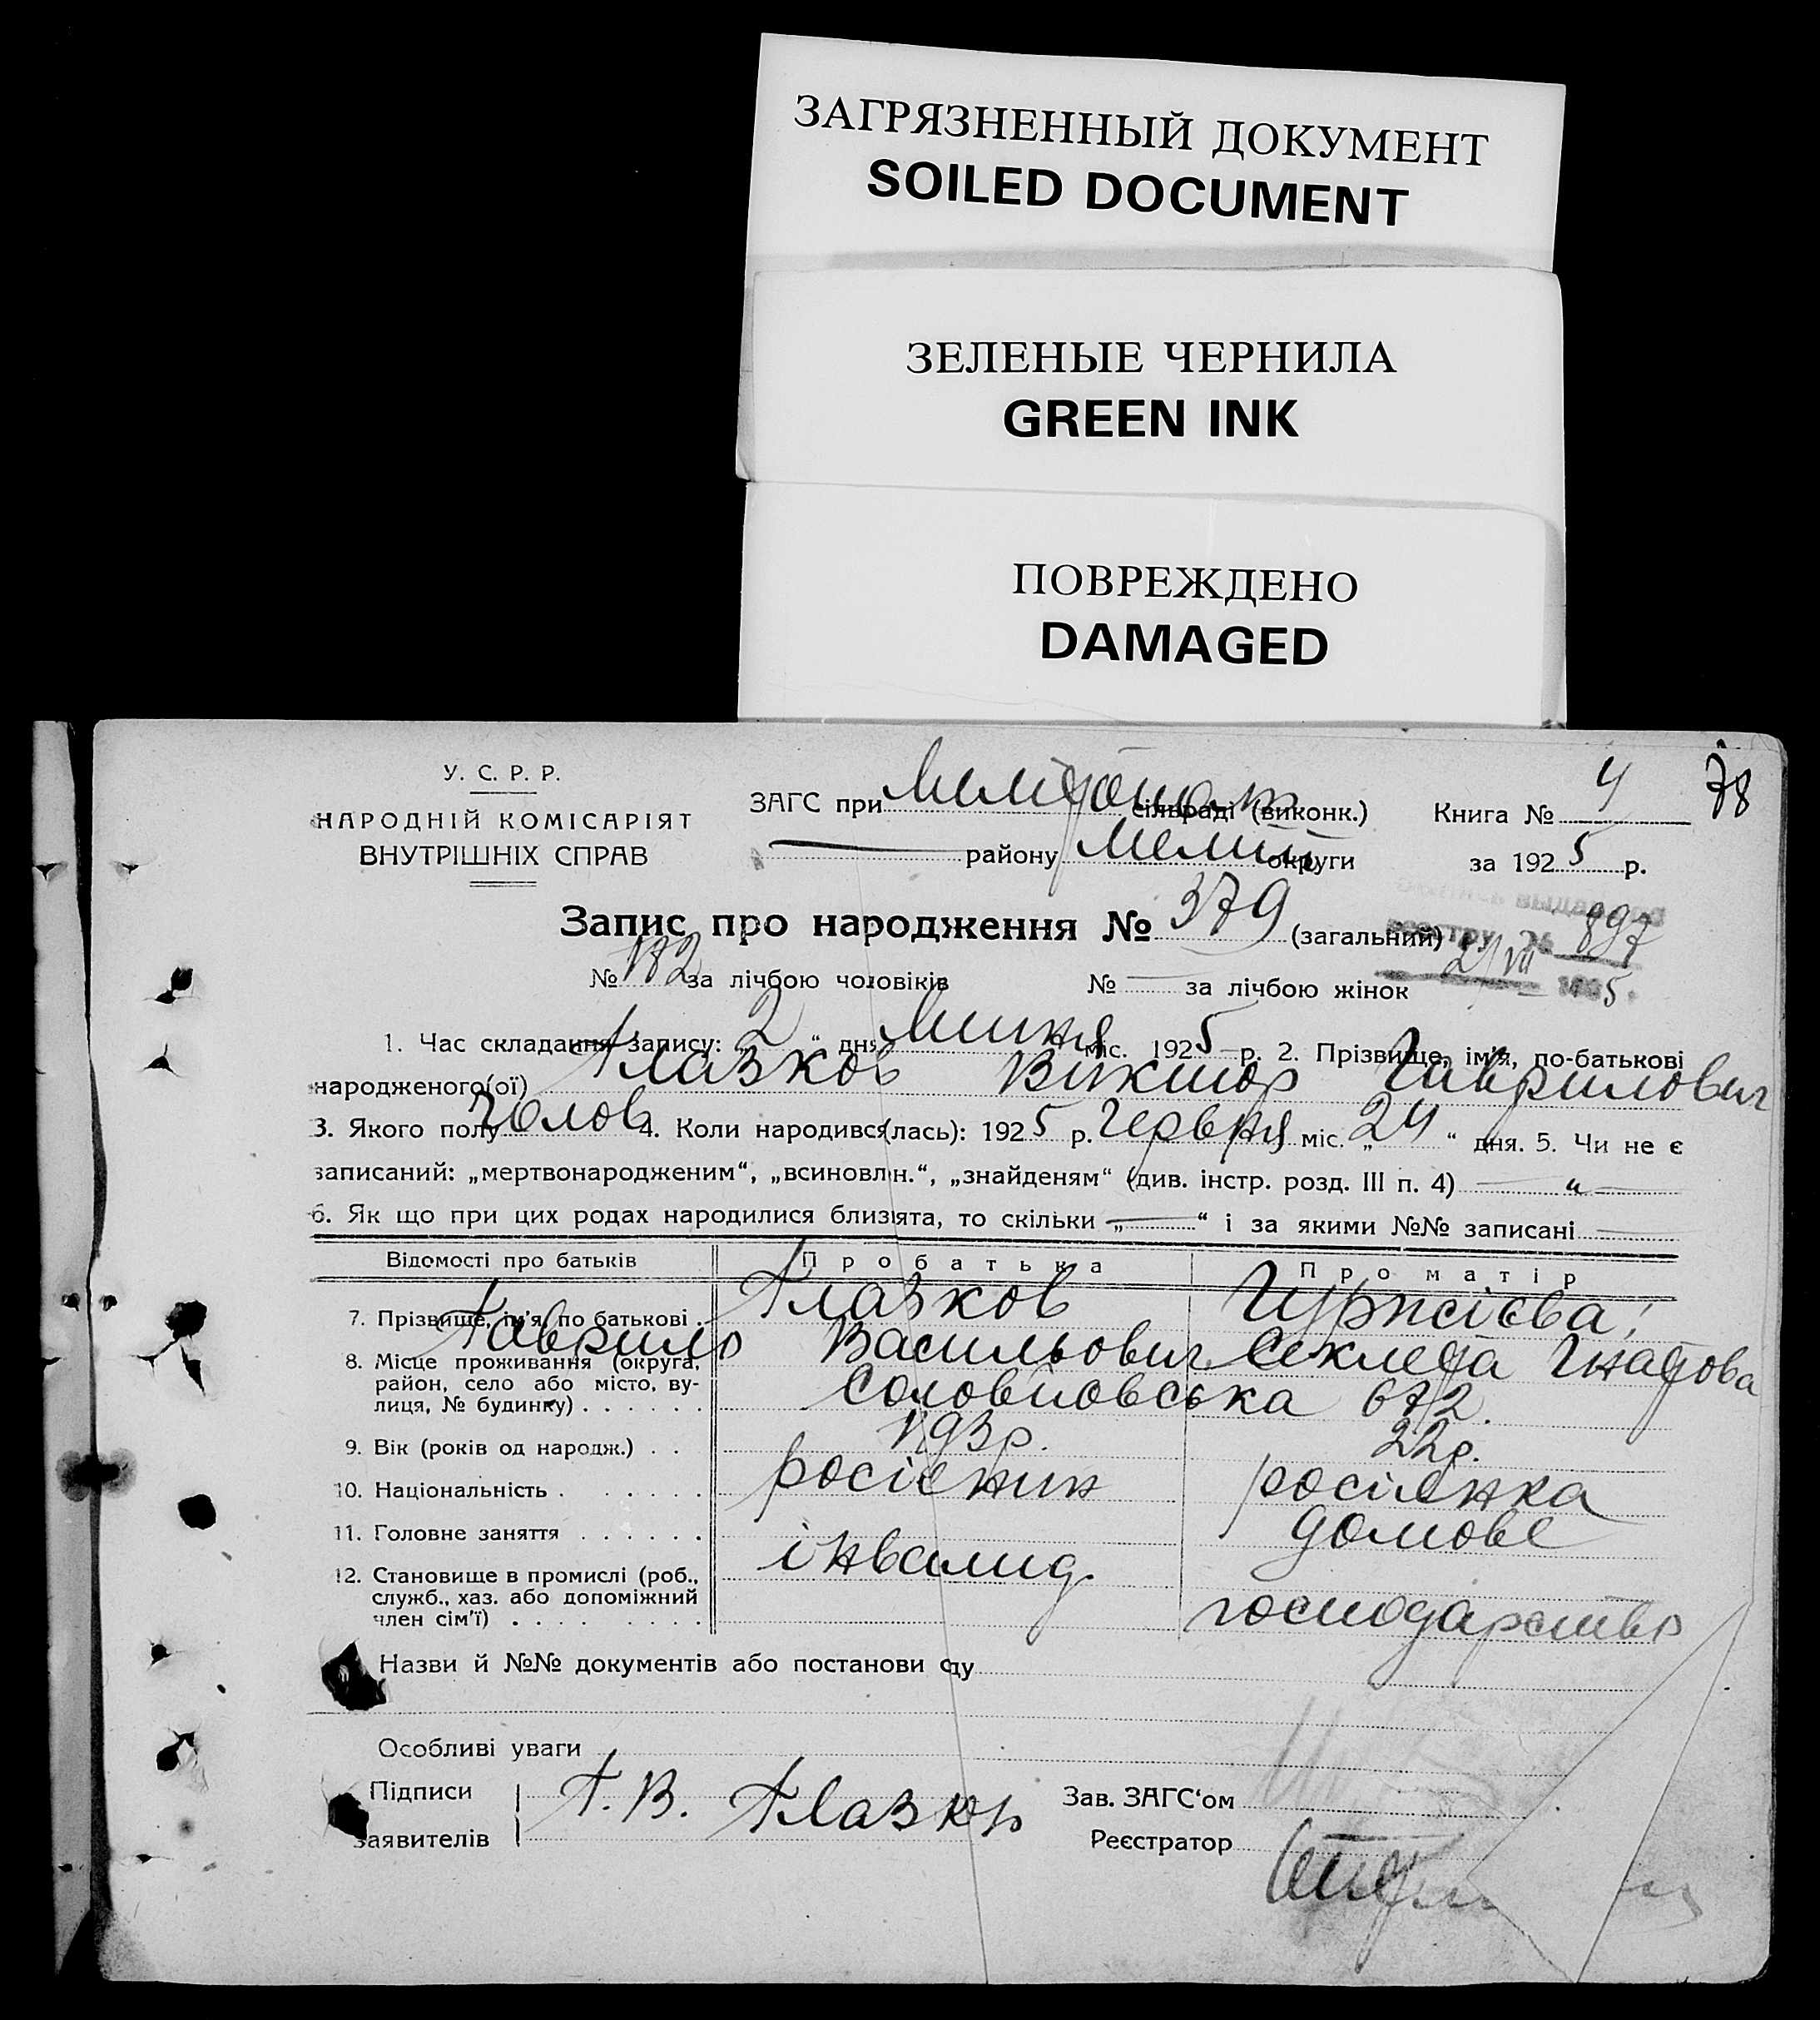 ЗАГРЯЗНЕННЫЙ ДОКУМЕНТ
SOILED DOCUMENT
ЗЕЛЕНЫЕ ЧЕРНИЛА
GREEN INK
ПОВРЕЖДЕНО
DAMAGED
У. С. Р. Р.
НАРОДНІЙ КОМІСАРІЯТ
ВНУТРІШНІХ СПРАВ
ЗАГС при сільраді (виконк.)
району Меліт округи
Книга № 4 78
за 1925 р.
Запис про народження № 379 (загальний)
реестру № 897
№ 182 за лічбою чоловіків № — за лічбою жінок
1. Час складання запису: „2“ дня Липня міс. 1925 р. 2. Прізвище, ім'я, по-батькові
народженого(ої) Глазков Виктор Гаврилович
3. Якого полу Чолов 4. Коли народився(лась): 1925 р. Червня міс. „24“ дня. 5. Чи не є
записаний: „мертвонародженим“, „всиновлн.“, „знайденям“ (див. інстр. розд. III п. 4) — „ —
6. Як що при цих родах народилися близнята, то скільки „—“ і за якими №№ записані —
Відомості про батьків Про батька Про матір
7. Прізвище, ім'я, по батькові . Глазков
Гаврило Васильович Секлета Гнатова
8. Місце проживання (округа,
район, село або місто, ву-
лиця, № будинку) . . . . . .
672.
9. Вік (років од народж.) . . 1893р. 22р.
10. Національність . . . . . . росіянин росіянка
11. Головне заняття . . . . . . домове
інвалид.
12. Становище в промислі (роб.,
служб., хаз. або допоміжний
член сім'ї) . . . . . . . . .
господарство
Назви й №№ документів або постанови суду
Особливі уваги
Підписи
заявителів
Г. В. Глазков
Зав. ЗАГС'ом
Реєстратор